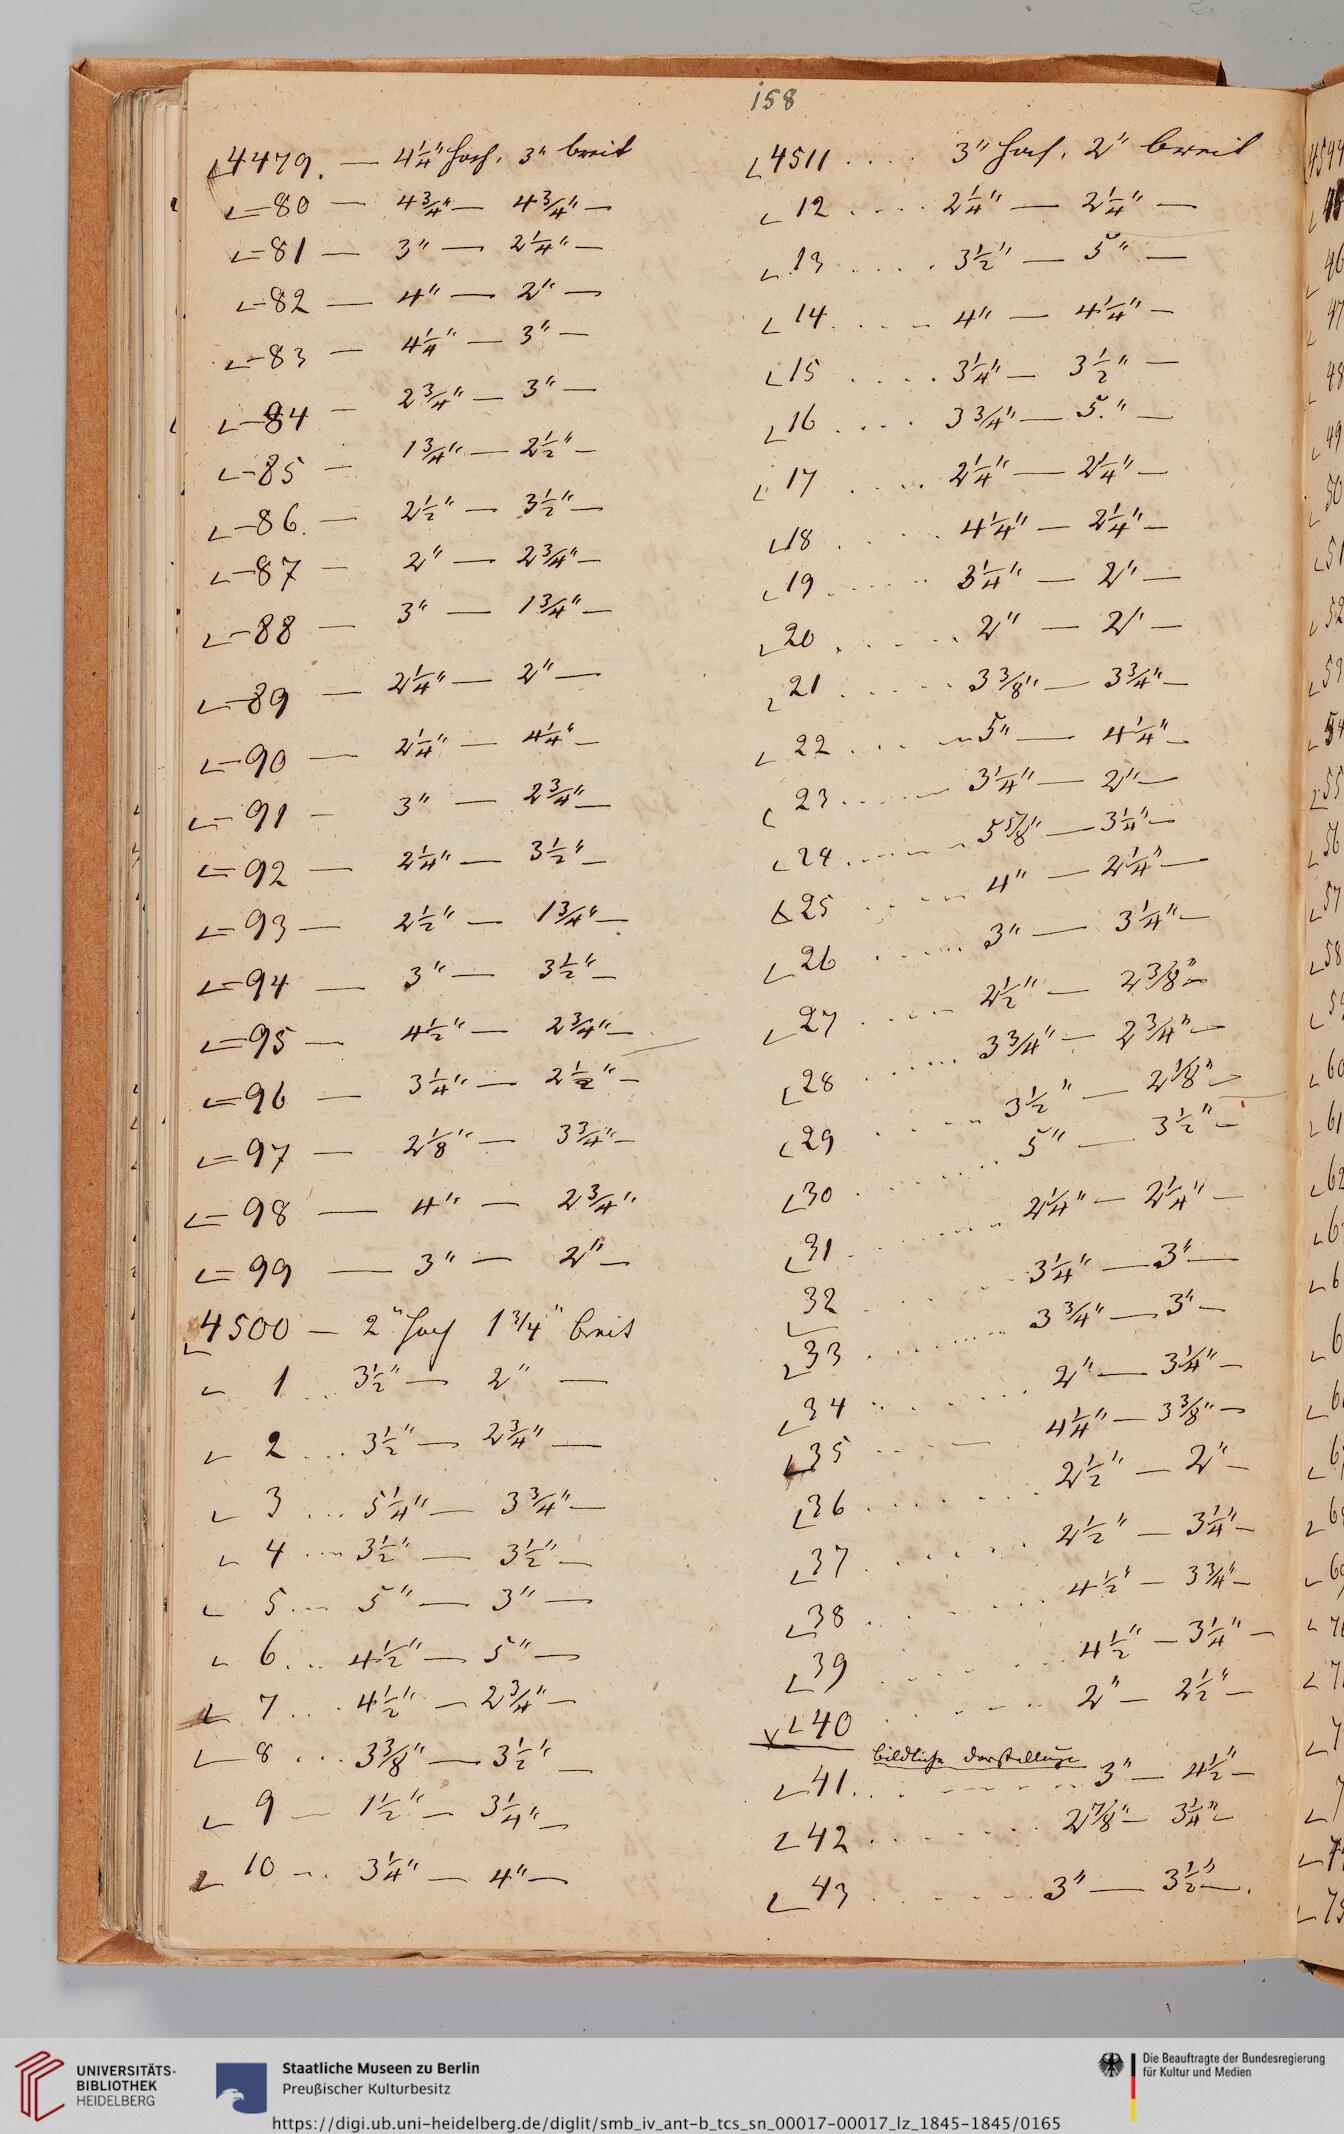 158
4479. — 4 1/4" hoch. 3" breit
— 80 — 4 3/4" — 4 3/4" —
= 81 — 3" — 2 1/4" —
— 82 — 4" — 2" —
— 83 — 4 1/4" — 3" —
— 84 — 2 3/4" — 3" —
— 85 — 1 3/4" — 2 1/2" —
— 86. — 2 1/2" — 3 1/2" —
— 87 — 2" — 2 3/4" —
— 88 — 3" — 1 3/4" —
— 89 — 2 1/4" — 2" —
— 90 — 2 1/4" — 4 1/4" —
— 91 — 3" — 2 3/4" —
= 92 — 2 1/4" — 3 1/2" —
= 93 — 2 1/2" — 1 3/4" —
= 94 — 3" — 3 1/2" —
= 95 — 4 1/2" — 2 3/4" —
= 96 — 3 1/4" — 2 1/2" —
= 97 — 2 1/8" — 3 3/4" —
= 98 — 4" — 2 3/4"
= 99 — 3" — 2" —
4500 — 2" hoch 1 3/4" breit
1 ... 3 1/2" — 2" —
2 ... 3 1/2" — 2 3/4" —
3 ... 5 1/4" — 3 3/4" —
4 ... 3 1/2" — 3 1/2" —
5 ... 5" — 3" —
6 ... 4 1/2" — 5" —
7 ... 4 1/2" — 2 3/4" —
8 ... 3 3/8" — 3 1/2" —
9 — 1 1/2" — 3 1/4" —
10 — 3 1/4" — 4" —
4511 .... 3" hoch. 2" breit
12 .... 2 1/4" — 2 1/4" —
13 .... 3 1/2" — 5" —
14 .... 4" — 4 1/4" —
15 .... 3 1/4" — 3 1/2" —
16 .... 3 3/4" — 5." —
17 .... 2 1/4" — 2 1/4" —
18 .... 4 1/4" — 2 1/4" —
19 .... 3 1/4" — 2" —
20 .... 2" — 2" —
21 .... 3 3/8" — 3 3/4" —
22 .... 5" — 4 1/4" —
23 .... 3 1/4" — 2" —
24 .... 5 5/8" — 3 1/4" —
25 .... 4" — 2 1/4" —
26 .... 3" — 3 1/4" —
27 .... 2 1/2" — 2 3/8" —
28 .... 3 3/4" — 2 3/4" —
29 .... 3 1/2" — 2 1/8" —
30 .... 5" — 3 1/2" —
31 .... 2 1/4" — 2 1/4" —
32 .... 3 1/4" — 3" —
33 .... 3 3/4" — 3" —
34 .... 2" — 3 1/4" —
35 .... 4 1/4" — 3 3/8" —
36 .... 2 1/2" — 2" —
37 .... 2 1/2" — 3 1/4" —
38 .... 4 1/2" — 3 3/4" —
39 .... 4 1/2" — 3 1/4" —
40 .... 2" — 2 1/2" —
bildliche darstellunge
41. .... 3" — 4 1/2" —
42 .... 2 7/8" — 3 1/4" —
43 .... 3" — 3 1/2" —.
46
47
48
49
50
51
52
53
54
55
56
57
58
60
61
62
UNIVERSITÄTS-
BIBLIOTHEK
HEIDELBERG
Staatliche Museen zu Berlin
Preußischer Kulturbesitz
https://digi.ub.uni-heidelberg.de/diglit/smb_iv_ant-b_tcs_sn_00017-00017_lz_1845-1845/0165
Die Beauftragte der Bundesregierung
für Kultur und Medien